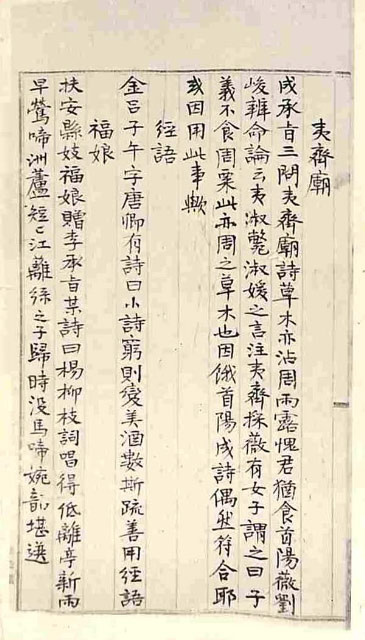 夷齊廟
成承旨三問夷齊廟詩草木亦沾周雨露愧君猶食首陽薇劉
峻辨命論云夷淑斃淑媛之言注夷齊採薇有女子謂之曰子
義不食周粟此亦周之草木也因餓首陽成詩偶然符合耶
或因用此事歟
經語
金吕子午字唐卿有詩曰小詩窮則變美酒數斯疏善用經語
福娘
扶安縣妓福娘贈李承旨某詩曰楊柳枝詞唱得低離亭新雨
早鶯啼洲蘆短〻江蘺綠之子歸時没馬啼婉韵堪選